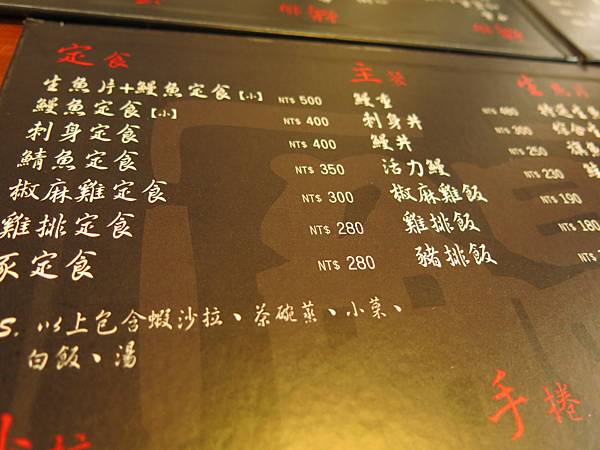 定食
生魚片+鰻魚定食【小】 NT$ 500
鰻魚定食【小】 NT$ 400
刺身定食 NT$ 400
鯖魚定食 NT$ 350
椒麻雞定食 NT$ 300
雞排定食 NT$ 280
定食 NT$ 280
S. 以上包含蝦沙拉、茶碗蒸、小菜、
白飯、湯
主餐
鰻重 NT$ 480
刺身丼 NT$ 300
鰻丼 NT$ 250
活力鰻 NT$ 230
椒麻雞飯 NT$ 190
雞排飯 NT$ 180
豬排飯 NT$
生魚片
特選生
綜合生
旗魚
手捲